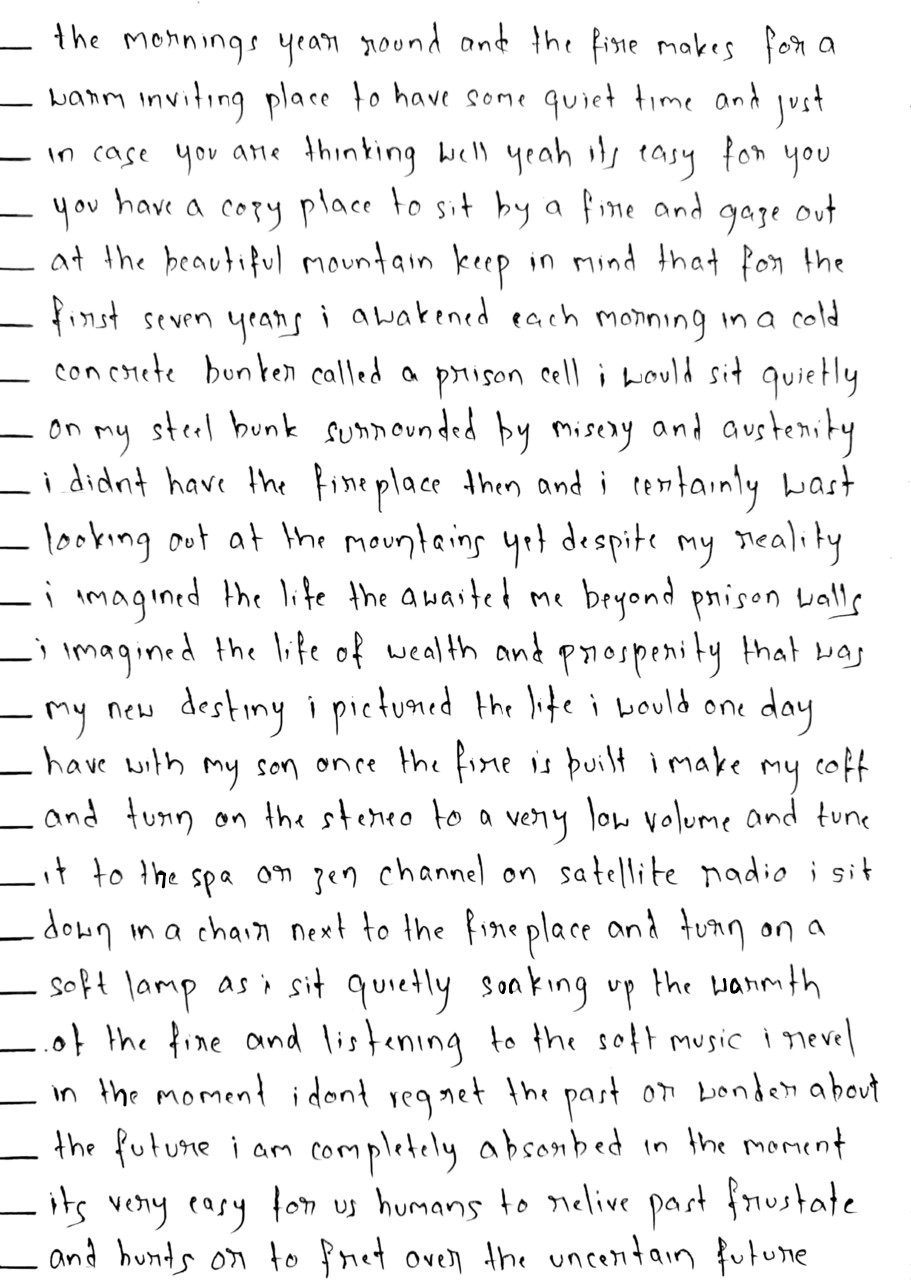 the mornings year round and the fire makes for a
warm inviting place to have some quiet time and just
in case you are thinking well yeah its easy for you
you have a cozy place to sit by a fire and gaze out
at the beautiful mountain keep in mind that for the
first seven years i awakened each morning in a cold
concrete bunker called a prison cell i would sit quietly
on my steel bunk surrounded by misery and austerity
i didnt have the fireplace then and i certainly wast
looking out at the mountains yet despite my reality
i imagined the life the awaited me beyond prison walls
i imagined the life of wealth and prosperity that was
my new destiny i pictured the life i would one day
have with my son once the fire is built i make my coff
and turn on the stereo to a very low volume and tune
it to the spa or zen channel on satellite radio i sit
down in a chair next to the fireplace and turn on a
soft lamp as i sit quietly soaking up the warmth
of the fire and listening to the soft music i revel
in the moment i dont regret the past or wonder about
the future i am completely absorbed in the moment
its very easy for us humans to relive past frustate
and hurts or to fret over the uncertain future